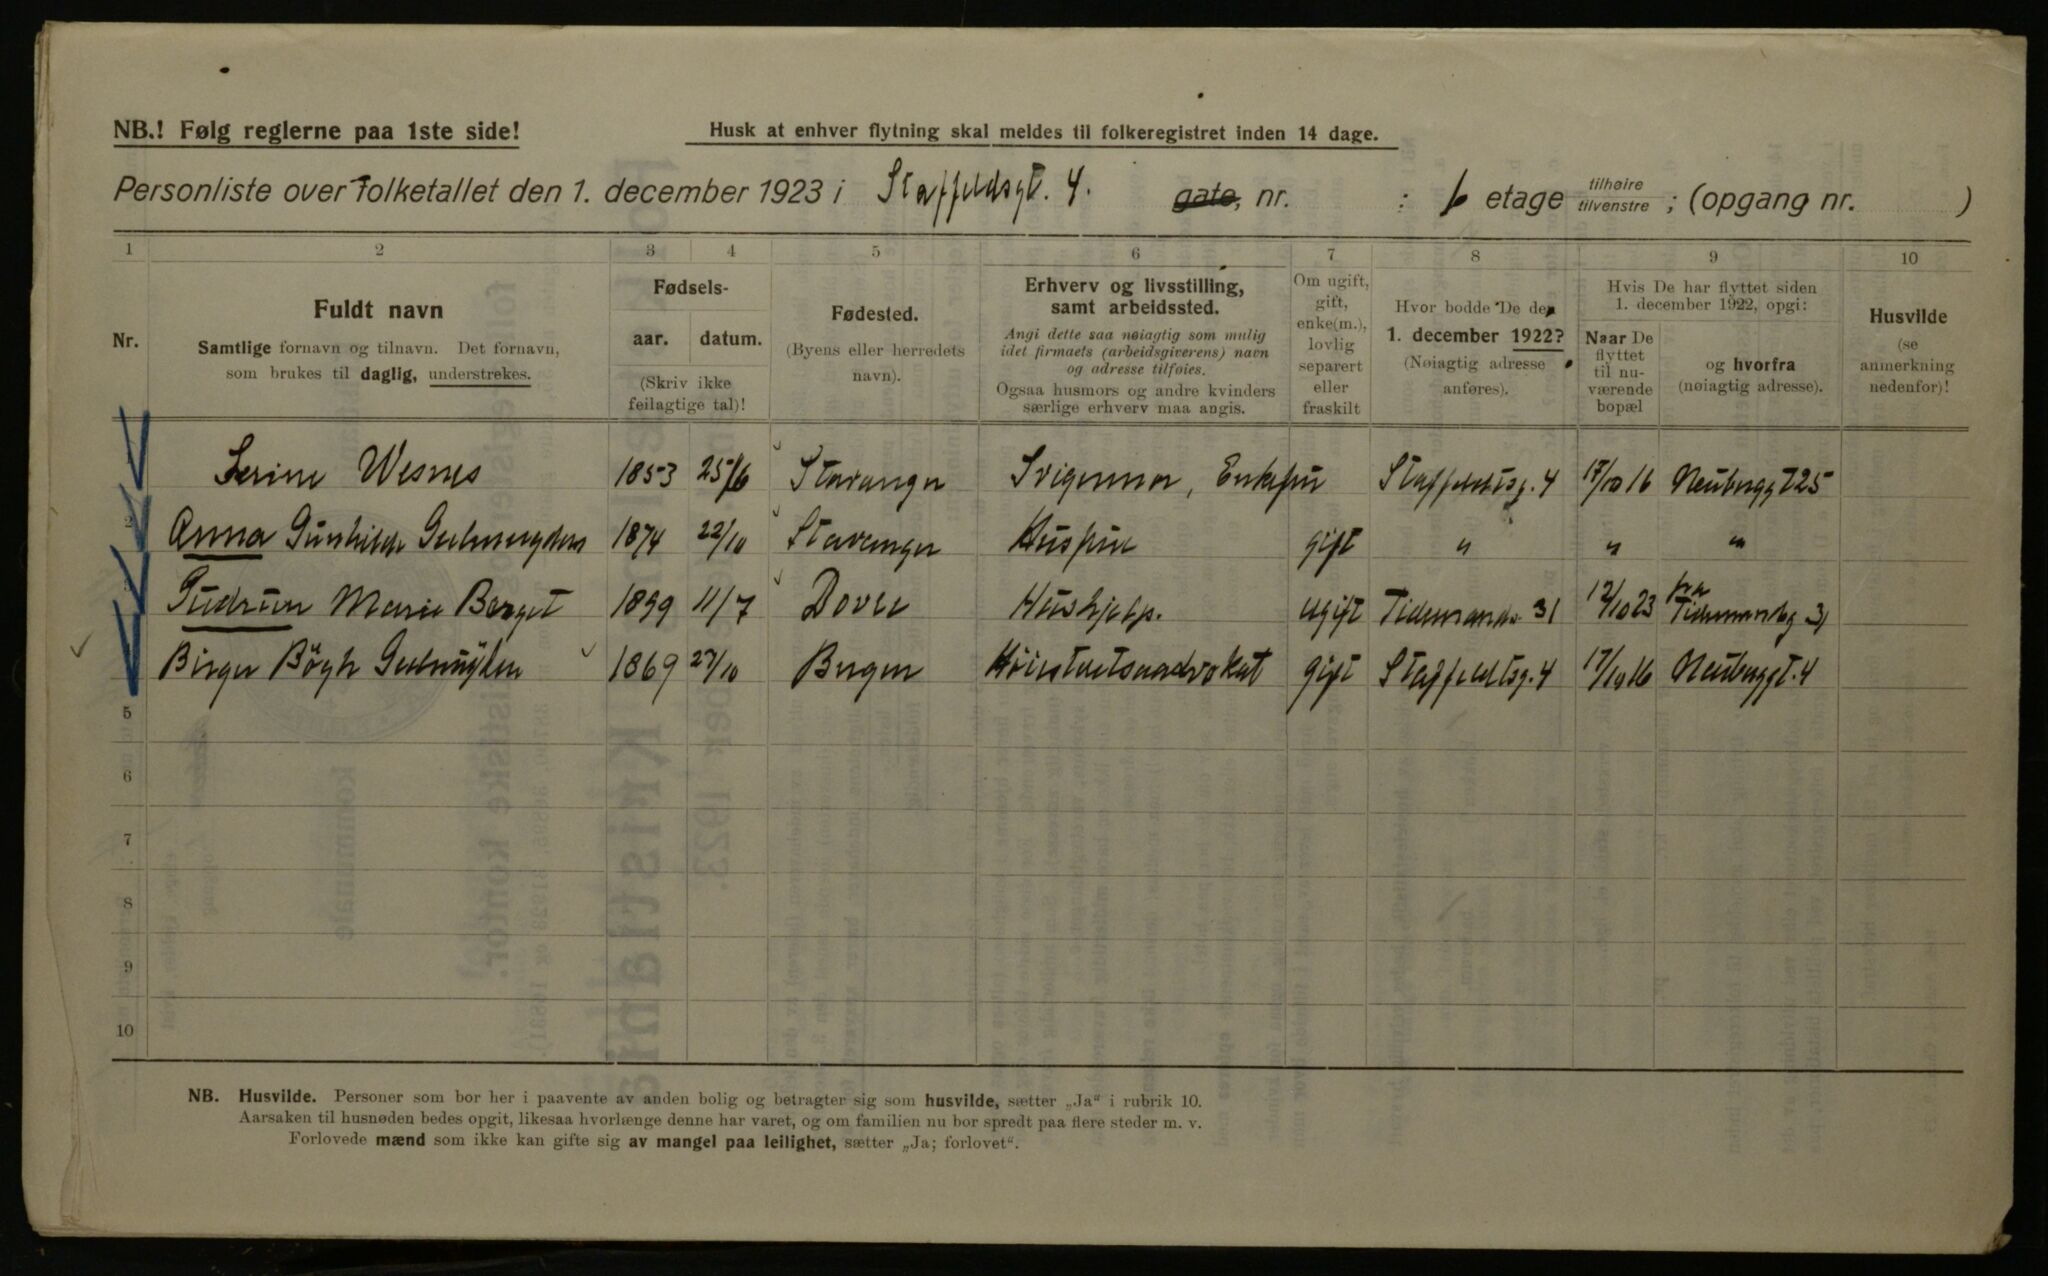 NB.! Følg reglerne paa 1ste side!
Husk at enhver flytning skal meldes til folkeregistret inden 14 dage.
Personliste over folketallet den 1. december 1923 i Staffeldsgt. 4. gate, nr. : 6 etage tilhøire tilvenstre ; (opgang nr. )
1 2 3 4 5 6 7 8 9 10
Nr.
Fuldt navn
Samtlige fornavn og tilnavn. Det fornavn,
som brukes til daglig, understrekes.
Fødsels-
aar. datum.
(Skriv ikke
feilagtige tal)!
Fødested.
(Byens eller herredets
navn).
Erhverv og livsstilling,
samt arbeidssted.
Angi dette saa nøiagtig som mulig
idet firmaets (arbeidsgiverens) navn
og adresse tilføies.
Ogsaa husmors og andre kvinders
særlige erhverv maa angis.
Om ugift,
gift,
enke(m.),
lovlig
separert
eller
fraskilt
Hvor bodde De den
1. december 1922?
(Nøiagtig adresse
anføres).
Hvis De har flyttet siden
1. december 1922, opgi:
Naar De
flyttet
til nu-
værende
bopæl
og hvorfra
(nøiagtig adresse).
Husvilde
(se
anmerkning
nedenfor)!
Serine Wesnes 1853 25/6 Stavanger Svigermor, Enkefru Staffeldtsg. 4 17/10 16 Neuberggt 25
2 Anna Gunhilde 1874 22/10 Stavanger Husfrue gift " " "
3 Gudrun Marie Berget 1899 11/7 Dovre Hushjelp. ugift Tidemands 31 12/10 23 fra Tidemandsg 31
Birger Bögh 1869 27/10 Bergen Høiestretsadvokat gift Staffeldtsg. 4 17/10 16 Neuberggt. 4
5
6
7
8
9
10
NB. Husvilde. Personer som bor her i paavente av anden bolig og betragter sig som husvilde, sætter „Ja“ i rubrik 10.
Aarsaken til husnøden bedes opgit, likesaa hvorlænge denne har varet, og om familien nu bor spredt paa flere steder m. v.
Forlovede mænd som ikke kan gifte sig av mangel paa leilighet, sætter „Ja; forlovet“.